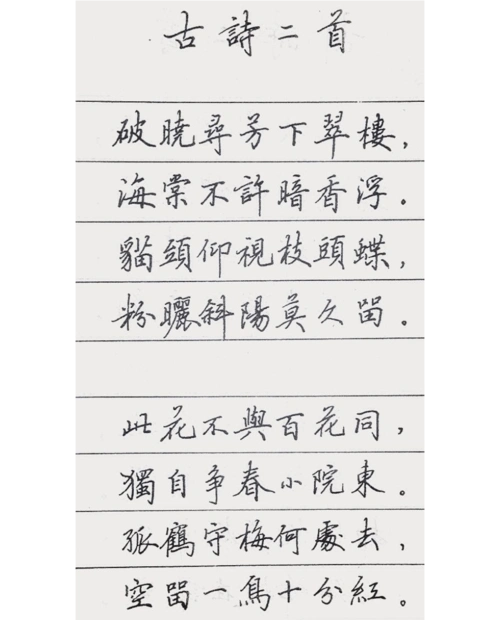 古詩二首
破曉尋芳下翠樓，
海棠不許暗香浮。
貓頭仰視枝頭蝶，
粉曬斜陽莫久留。
此花不與百花同，
獨自争春小院東。
孤鶴守梅何處去，
空留一鳥十分紅。